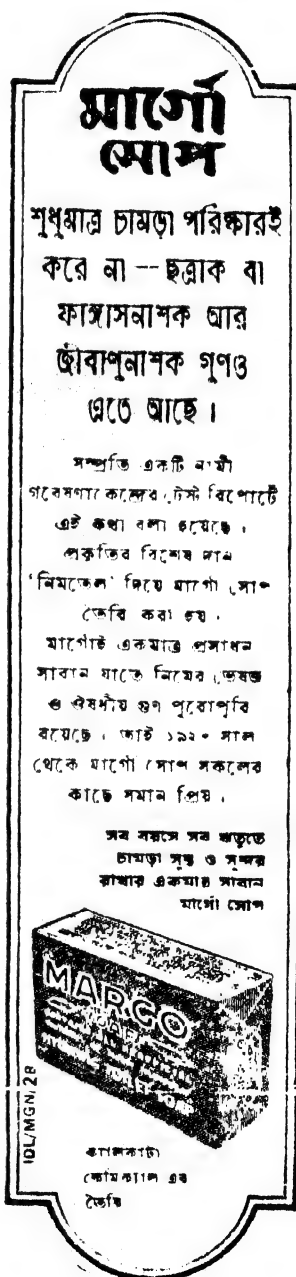 মার্গো
সোপ
শুধুমাত্র চামড়া পরিষ্কারই
করে না — ছত্রাক বা
ফাঙ্গাসনাশক আর
জীবাণুনাশক গুণও
এতে আছে ।
সম্প্রতি একটি নামী
গবেষণা কেন্দ্রের টেস্ট রিপোর্টে
এই কথা বলা হয়েছে ।
প্রকৃতির বিশেষ দান
'নিমতেল' দিয়ে মার্গো সোপ
তৈরি করা হয় ।
মার্গোই একমাত্র প্রসাধন
সাবান যাতে নিমের ভেষজ
ও ঔষধীয় গুণ পুরোপুরি
রয়েছে । তাই ১৯২০ সাল
থেকে মার্গো সোপ সকলের
কাছে সমান প্রিয় ।
সব বয়সে সব ঋতুতে
চামড়া সুস্থ ও সুন্দর
রাখার একমাত্র সাবান
মার্গো সোপ
MARGO
SOAP
IDL/MGN/2B
ক্যালকাটা
কেমিক্যাল এর
তৈরি